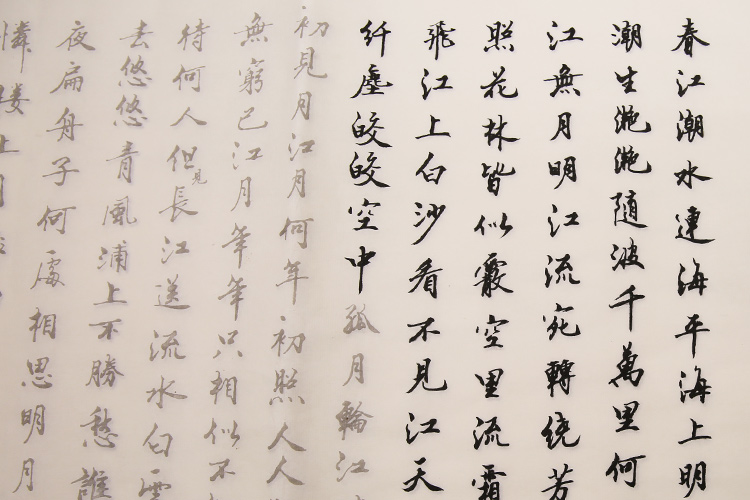 春江潮水連海平海上明
潮生滟滟随波千萬里何
江無月明江流宛轉绕芳
照花林皆似霰空里流霜
飛江上白沙看不見江天
纤塵皎皎空中孤月輪江
初見月江月何年初照人人
無窮已江月年年只相似不
待何人但見長江送流水白雲
去悠悠青風浦上不勝愁誰
夜扁舟子何處相思明月
憐楼上月